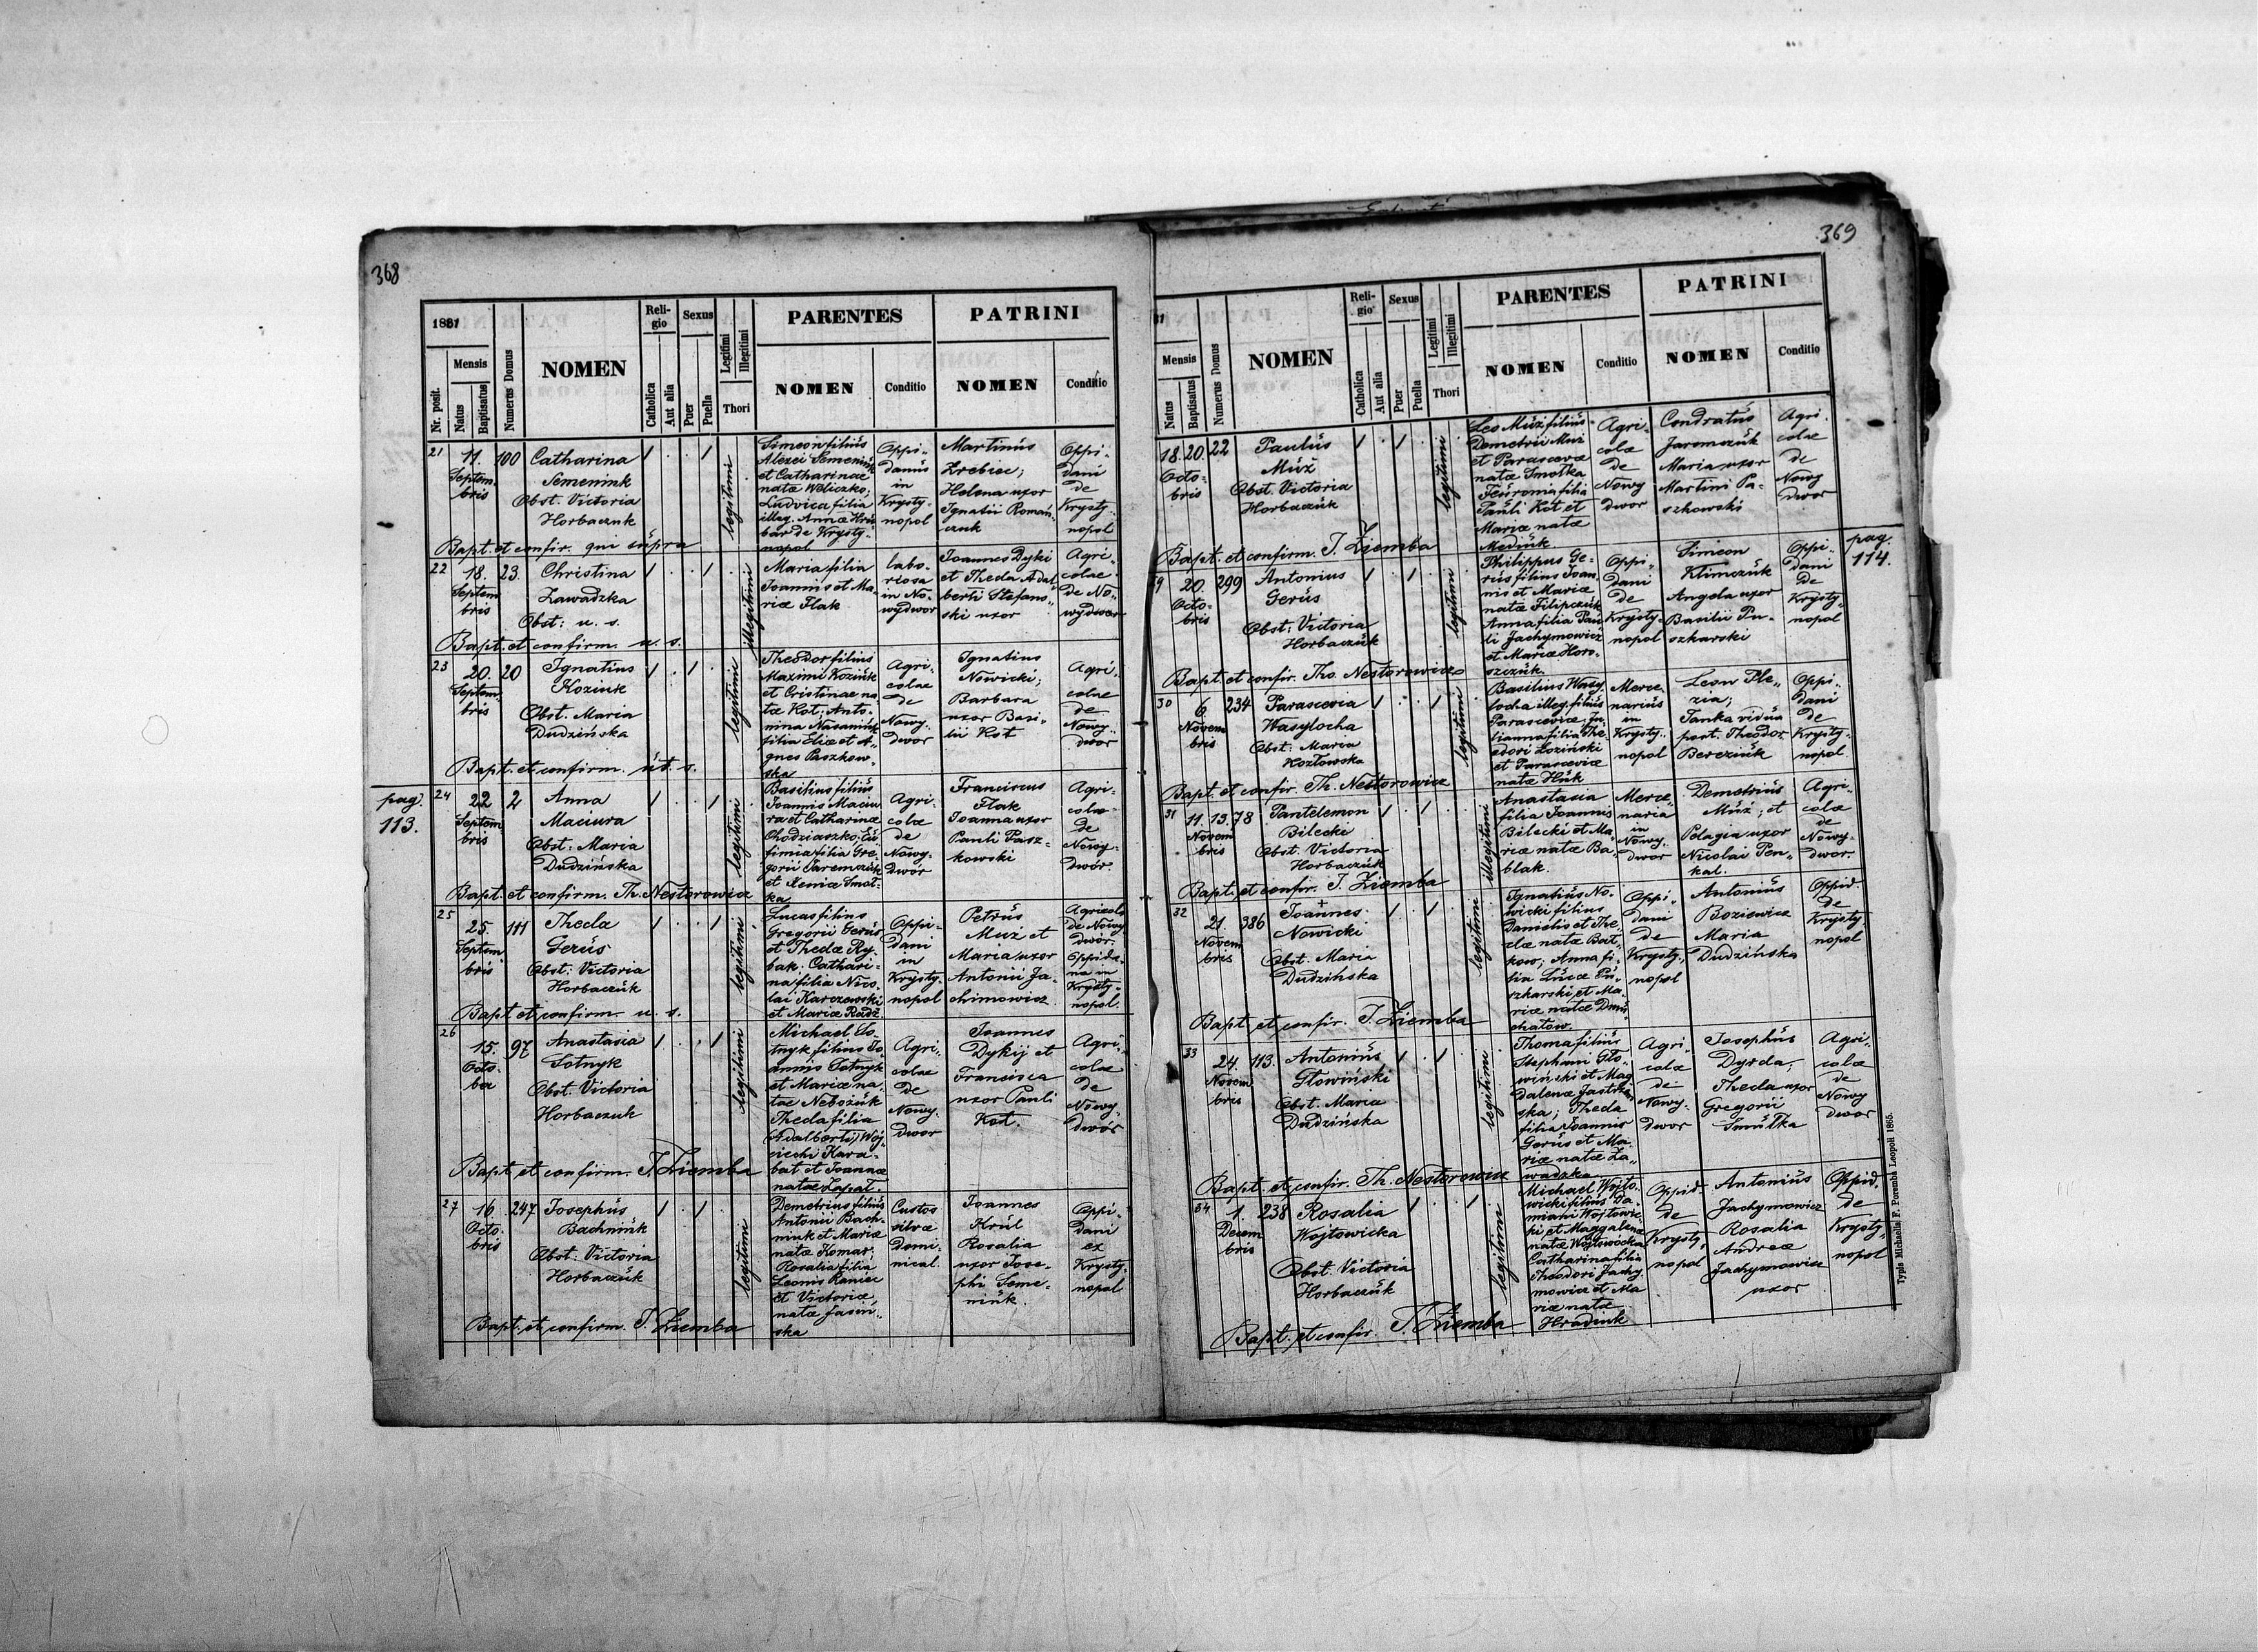 368
1881
Reli-
gio
Sexus
Legitimi
Illegitimi
Thori
PARENTES
PATRINI
Nr. posit.
Mensis
Natus
Baptisatus
Numerus Domus
NOMEN
Catholica
Aut alia
Puer
Puella
NOMEN
Conditio
NOMEN
Conditio
21
11.
Septem
bris
100
Catharina
Semeniuk
Obst. Victoria
Horbaczuk
legitimi
Simeon filius
Alexei Semeniuk
et Catharinae
natæ Weliczko;
Ludvica filia
illeg. Annæ Hru
bar de Krysty-
nopol
Oppi-
danus
in
Krysty-
nopol
Martinus
Zrebiec;
Helena uxor
Ignatii Romań-
czuk
Oppi-
dani
de
Krysty-
nopol
Bapt. et confir. qui supra
22
18.
Septem
bris
23.
Christina
Zawadzka
Obst: u. s.
illegitimi
Maria filia
Joannis et Ma-
riæ Flak
labo-
riosa
in No-
wydwor
Joannes Dyki
et Theda Adal
berti Stefans-
ski uxor
Agri-
colae
de No-
wydwor
Bapt. et confirm. u. s.
23
20.
Septem
bris
20
Ignatius
Koziuk
Obst. Maria
Dudzińska
legitimi
Theodor filius
Maximi Koziuk
et Cristinae na
tæ Kot; Anto-
nina Nasaniuk
filia Eliæ et A-
gnes Paszkow-
ska
Agri-
colae
de
Nowy-
dwor
Ignatius
Nowicki;
Barbara
uxor Basi-
lii Kot
Agri-
colae
de
Nowy-
dwor
Bapt. et confirm. út. s.
pag.
113.
24
22
Septem
bris
2
Anna
Maciura
Obst. Maria
Dudzińska
legitimi
Basilius filius
Joannis Maciu
ra et Catharinæ
Chodziaszko; Eu
fimia filia Gre-
gorii Jaremczuk
et Xeniæ Smoł-
ka
Agri-
colæ
de
Nowy-
dwór
Franciscus
Flak
Joanna uxor
Pauli Pasz-
kowski
Agri-
colæ
de
Nowy-
dwór
Bapt. et confirm. Th. Nestorowicz
25
25.
Septem
bris
111
Thecla
Gerus
Obst: Victoria
Horbaczúk
legitimi
Lucas filius
Gregorii Gerús
et Thedæ Ry-
bak; Cathari-
na filia Nico-
lai Karczewski
et Mariæ Radz.
Oppi-
dani
in
Krysty-
nopol
Petrus
Muz et
Maria uxor
Antonii Ja-
chimowicz
Agricola
de Nowy
dwór.
Oppida-
na in
Krysty-
nopol.
Bapt. et confirm. u. s.
26
15.
Octo-
bris
97
Anastasia
Sotnyk
Obst. Victoria
Horbaczuk
legitimi
Michael So
tnyk filius Jo-
annis Sotnyk
et Mariæ na-
tae Nebożúk
Theda filia
(Adalberti) Woj-
ciechi Kara-
bat et Joannæ
natæ Łapat.
Agri-
colæ
de
Nowy-
dwor
Joannes
Dykij et
Francisca
uxor Pauli
Kot.
Agri-
colæ
de
Nowy-
dwór
Bapt. et confirm. T. Ziemba
27
16
Octo-
bris
247
Josephús
Bachniúk
Obst. Victoria
Horbaczúk
legitimi
Demetrius filius
Antonii Bach-
niuk et Mariæ
natæ Komar;
Rosalia filia
Leonis Kaniec
et Victoriæ,
natæ Jasiń-
ska
Custos
silvæ
Domi-
nical.
Joannes
Król
Rosalia
uxor Jose-
phi Seme-
niúk.
Oppi-
dani
ex
Krysty-
nopol
Bapt. et confirm. T. Ziemba
369
Mensis
Natus
Baptisatus
Numerus Domus
NOMEN
Reli-
gio
Catholica
Aut alia
Sexus
Puer
Puella
Legitimi
Illegitimi
Thori
PARENTES
NOMEN
Conditio
PATRINI
NOMEN
Conditio
18.
20.
Octo-
bris
22
Paulús
Múz
Obst. Victoria
Horbaczúk
legitimi
Leo Múz filius
Demetrii Muz
et Parascevæ
natæ Smolka
Feuronia filia
Pauli Kot et
Mariæ natæ
Mediuk
Agri-
colæ
de
Nowy
dwor
Condratús
Jaremczúk
Maria uxor
Martini Pa-
szkowski
Agri-
colæ
de
Nowy
dwor
Bapt. et confirm. T. Ziemba
pag.
114.
9
20.
Octo-
bris
299
Antonius
Gerús
Obst: Victoria
Horbaczúk
legitimi
Philippus Ge-
rús filius Joan
nis et Mariæ
natæ Filipczúk
Anna filia Pau
li Jachymowicz
et Mariæ Horo-
szczúk
Oppi-
dani
de
Krysty-
nopol
Simeon
Klimczúk
Angela uxor
Basilii Pu-
szkarski
Oppi-
dani
de
Krysty-
nopol
Bapt. et confir. Tho. Nestorowicz
30
6
Novem
bris
234
Parascevia
Wasylocha
Obst. Maria
Kozłowska
legitimi
Basilius Wasy-
locha illeg. filius
Parasceviæ, Ju-
lianna filia The-
odori Łoziński
et Parasceviæ
natæ Húk
Merce-
narius
in
Krysty-
nopol
Leon Ple-
zia;
Tanka vidua
post. Theodor.
Bereziúk
Oppi-
dani
de
Krysty-
nopol
Bapt. et confir. Th. Nestorowicz
31
11.
13.
Novem
bris
78
Pantelemon
Bilecki
Obst. Victoria
Horbaczúk
illegitimi
Anastasia
filia Joannis
Bilecki et Ma-
riæ natæ Ba-
blak.
Merce-
naria
in
Nowy-
dwor
Demetrius
Múz; et
Pelagia uxor
Nicolai Pen-
kal.
Agri-
colæ
de
Nowy-
dwor.
Bapt. et confir. T. Ziemba
32
21.
Novem
bris
386
Joannes
Nowicki
Obst. Maria
Dudzińska
legitimi
Ignatius No-
wicki filius
Danielis et The
clæ natæ Bat-
kow; Anna fi-
lia Lúcæ Pú-
szkarski et Ma-
riæ natæ
Oppi-
dani
de
Krysty-
nopol
Antoniús
Boziewicz
Maria
Dudzińska
Oppid.
de
Krysty-
nopol
Bapt. et confir. T. Ziemba
33
24.
Novem
bris
113.
Antoniús
Głowiński
Obst. Maria
Dúdzińska
legitimi
Thoma filius
Stephani Gło-
wiński et Mag
dalenæ
ska; Theda
filia Joannis
Gerús et Ma-
riæ natæ Za-
wadzka
Agri-
colæ
de
Nowy-
dwor
Josephús
Dyrda;
Theda uxor
Gregorii
Smúłka
Agri-
colæ
de
Nowy
dwor
Bapt. et confir. Th. Nestorowicz
34
1.
Decem
bris
238
Rosalia
Wojtowicka
Obst. Victoria
Horbaczúk
legitimi
Michael Wojto-
wicki filius Da-
miani Wojtowic-
ki et Maggalenæ
natæ Wojtowicka
Catharina filia
Theodori Jachy-
mowicz et Ma
riæ natæ
Hradiuk
Oppid.
de
Krysty-
nopol
Antoniús
Jachymowicz
Rosalia
Andreæ
Jachymowicz
uxor
Oppid.
de
Krysty-
nopol
Bapt. et confir. T. Ziemba
Typis Michaelis F. Poremba Leopoli 1865.